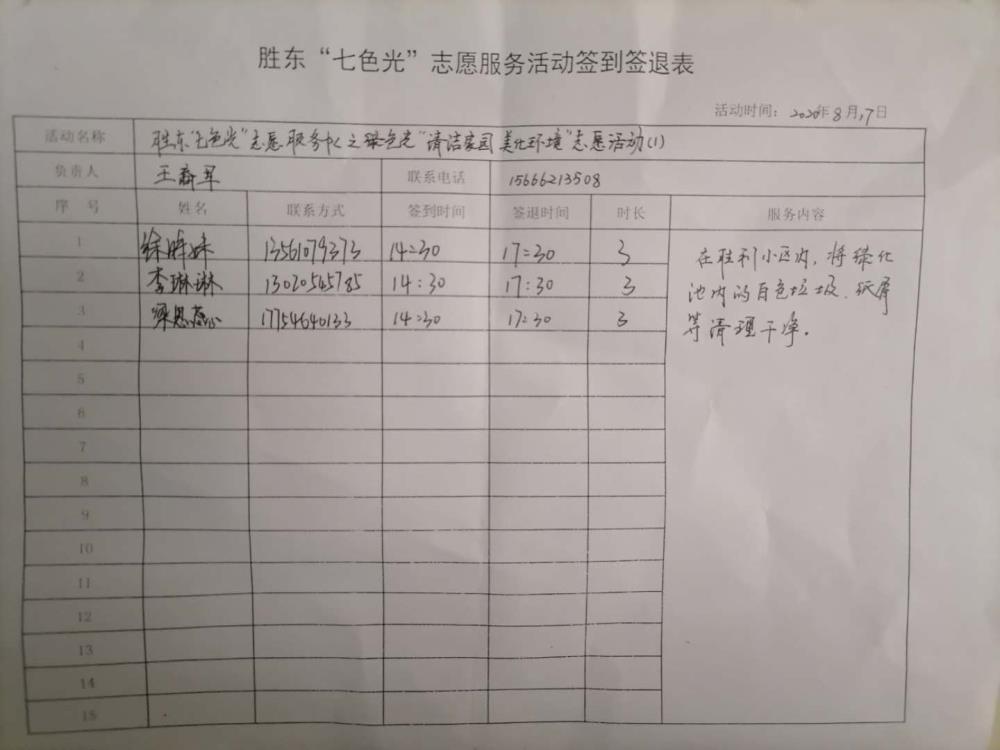 胜东“七色光”志愿服务活动签到签退表
活动时间：2020年8月17日
活动名称 胜东“七色光”志愿服务中心之绿色光“清洁家园 美化环境”志愿活动(1)
负责人 王 军 联系电话 15666213508
序 号 姓名 联系方式 签到时间 签退时间 时长 服务内容
1 徐 妹 13561079373 14:30 17:30 3
2 李琳琳 13020545785 14:30 17:30 3
3 梁思 17754640133 14:30 17:30 3
在胜利小区内，将绿化
池内的白色垃圾、纸屑
等清理干净.
4
5
6
7
8
9
10
11
12
13
14
15